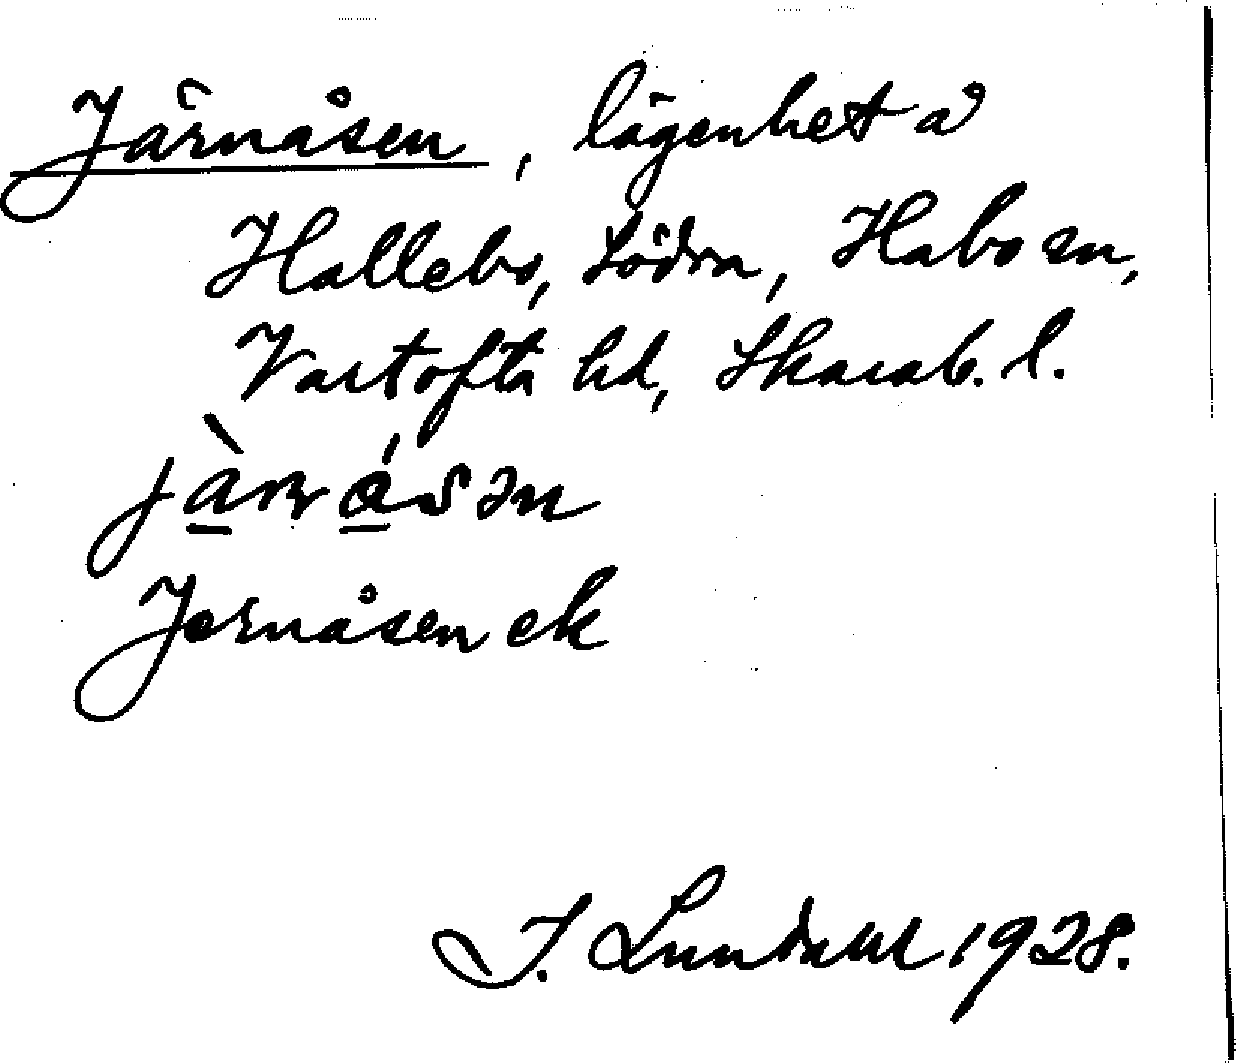 Järnåsen, lägenhet å
Hallebo, Södra, Habo sn,
Vartofta hd, Skarab. l.
Jernåsen ek
I. Lundahl 1928.